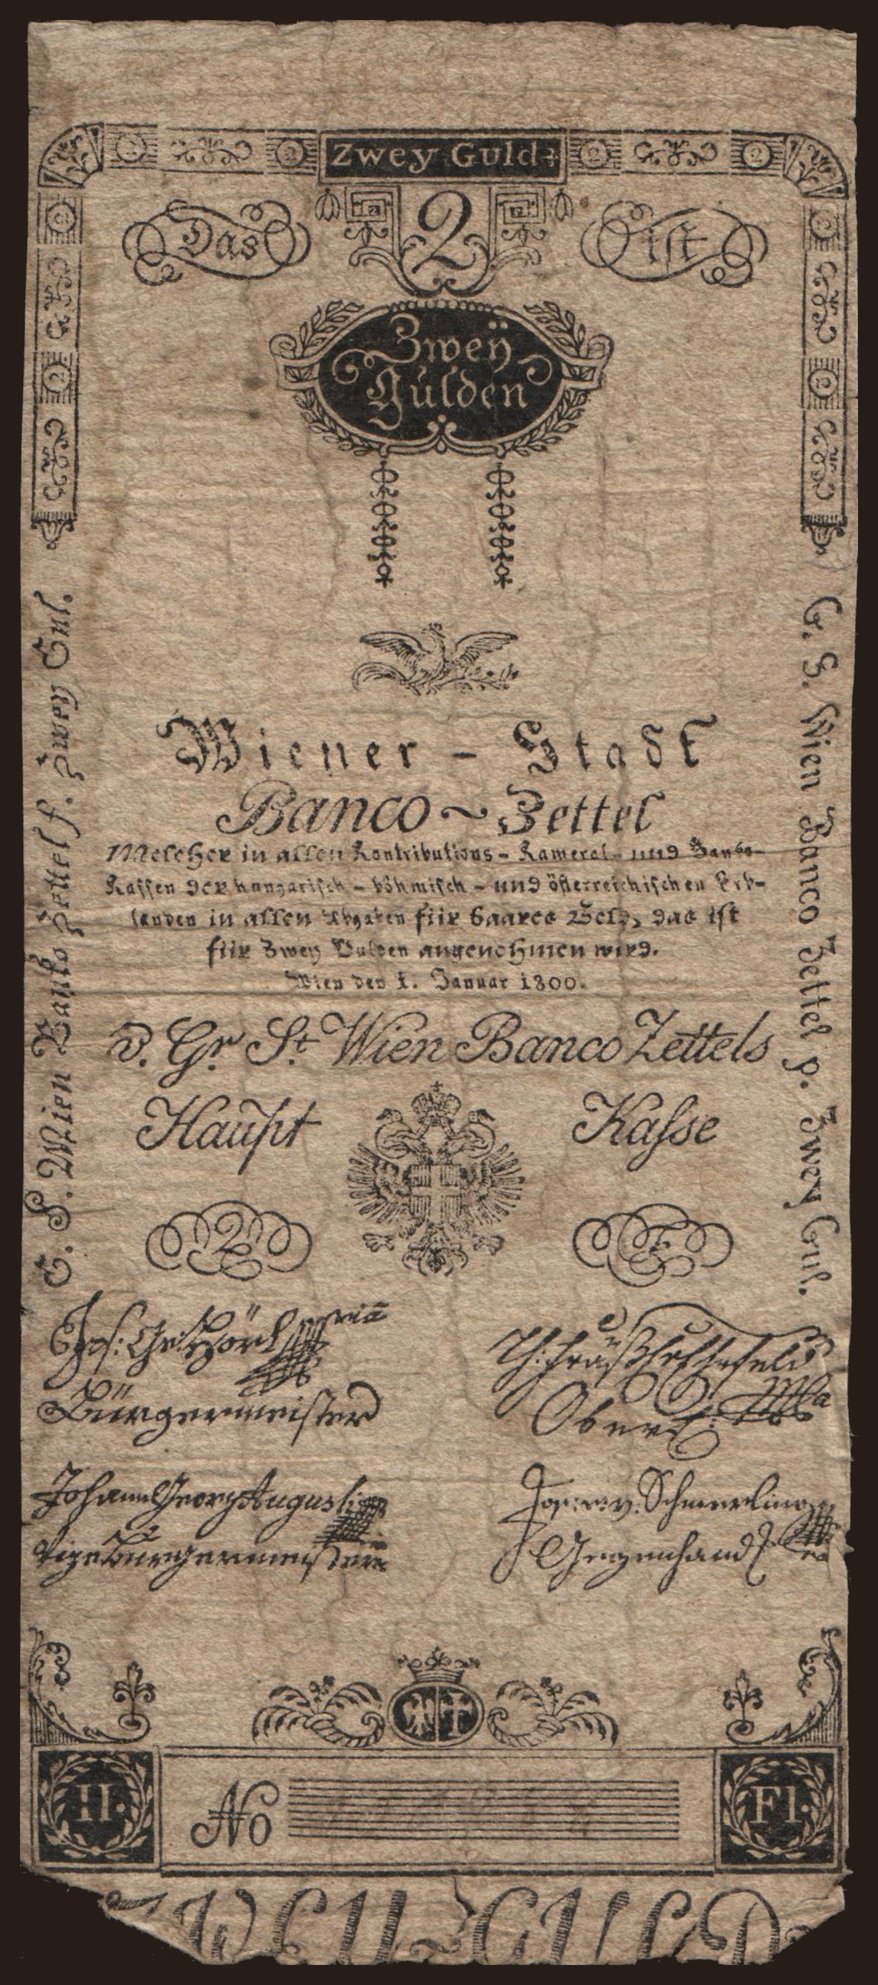 Zwey Guld:
Das 2 ist
Zweÿ
Gulden
Wiener - Stadt
Banco ~ Zettel
Welcher in allen Kontributions - Kameral - und Banko-
Kassen der hungarisch - böhmisch - und österreichischen Erb-
landen in allen Abgaben für baares Geld, das ist
für Zwey Gulden angenohmen wird.
Wien den 1. Januar 1800.
D. Gr. St. Wien Banco Zettels
Haupt Kasse
2 F
Bürgermeister Oberst
Johann Georg Augusti Jos: v. Schmerling
Vize Bürgermeister Gegenhand
G. S. Wien Banko Zettel f. Zwey Gul.
G. S. Wien Banco Zettel p. Zwey Gul.
II. No Fl.
ZWEY ~ GULD